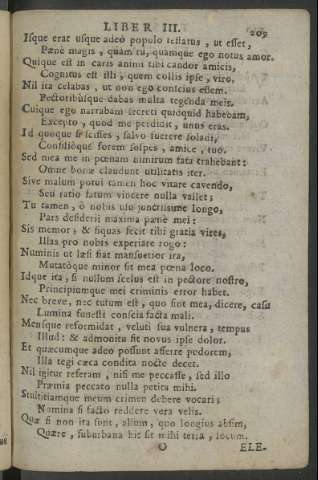 LIBER III. 209
Isque erat usque adeo populo testatus, ut esset,
Pænè magis, quàm tu, quamque ego notus amor.
Quique est in caris animi tibi candor amicis,
Cognitus est illi, quem collis ipse, viro.
Nil ita celabas, ut non ego conscius essem.
Pectoribúsque dabas multa tegenda meis.
Cuique ego narrabam secreti quidquid habebam,
Excepto, quod me perdidit, unus eras.
Id quoque si scisses, salvo fuerere sodali,
Consilióque forem sospes, amice, tuo.
Sed mea me in pœnam nimirum fata trahebant:
Omne bonæ claudunt utilitatis iter.
Sive malum potui tamen hoc vitare cavendo,
Seu ratio fatum vincere nulla valet;
Tu tamen, ô nobis usu junctissime longo,
Pars desiderii maxima pænè mei:
Sis memor; & siquas fecit tibi gratia vires,
Illas pro nobis experiare rogo:
Numinis ut læsi fiat mansuetior ira,
Mutatòque minor sit mea pœna loco.
Idque ita, si nullum scelus est in pectore nostro,
Principiumque mei criminis error habet.
Nec breve, nec tutum est, quo sint mea, dicere, casu
Lumina funesti conscia facta mali.
Mensque reformidat, veluti sua vulnera, tempus
Illud: & admonitu fit novus ipse dolor.
Et quæcumque adeo possunt afferre pudorem,
Illa tegi cæca condita nocte decet.
Nil igitur referam, nisi me peccasse, sed illo
Præmia peccato nulla petita mihi.
Stultitiamque meum crimen debere vocari;
Nomina si facto reddere vera velis.
Quæ si non ita sunt, alium, quo longiùs absim,
Quære, suburbana hic sit mihi terra, locum.
O ELE-